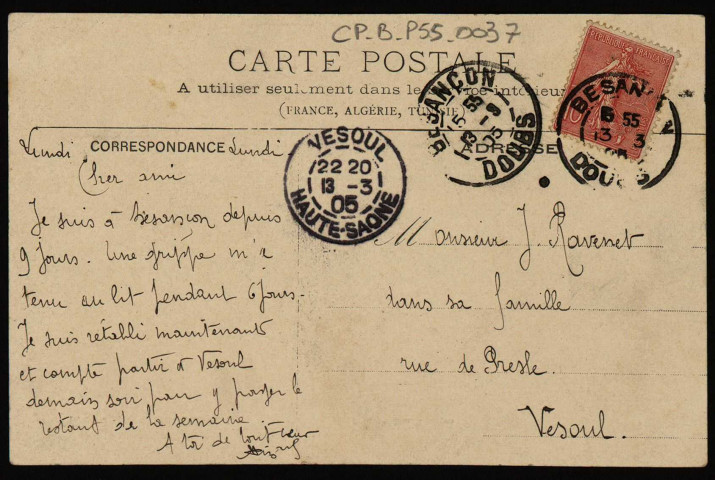 CP-B-P55-0037
CARTE POSTALE
A utiliser seulement dans le intérieur
(FRANCE, ALGÉRIE, TUNISIE
CORRESPONDANCE
ADRESSE
Lundi Lundi
Cher ami
Je suis à Besançon depuis
9 jours. Une grippe m'a
tenu au lit pendant 6 jours.
Je suis rétabli maintenant
et compte partir à Vesoul
demain soir pour y passer le
restant de la semaine
A toi de tout cœur
VESOUL
22 20
13 -3
05
HAUTE-SAONE
BESANÇON
DOUBS
BESANÇON
6 55
13 3
05
DOUBS
Monsieur J. Ravenet
dans sa famille
rue de Presle.
Vesoul.